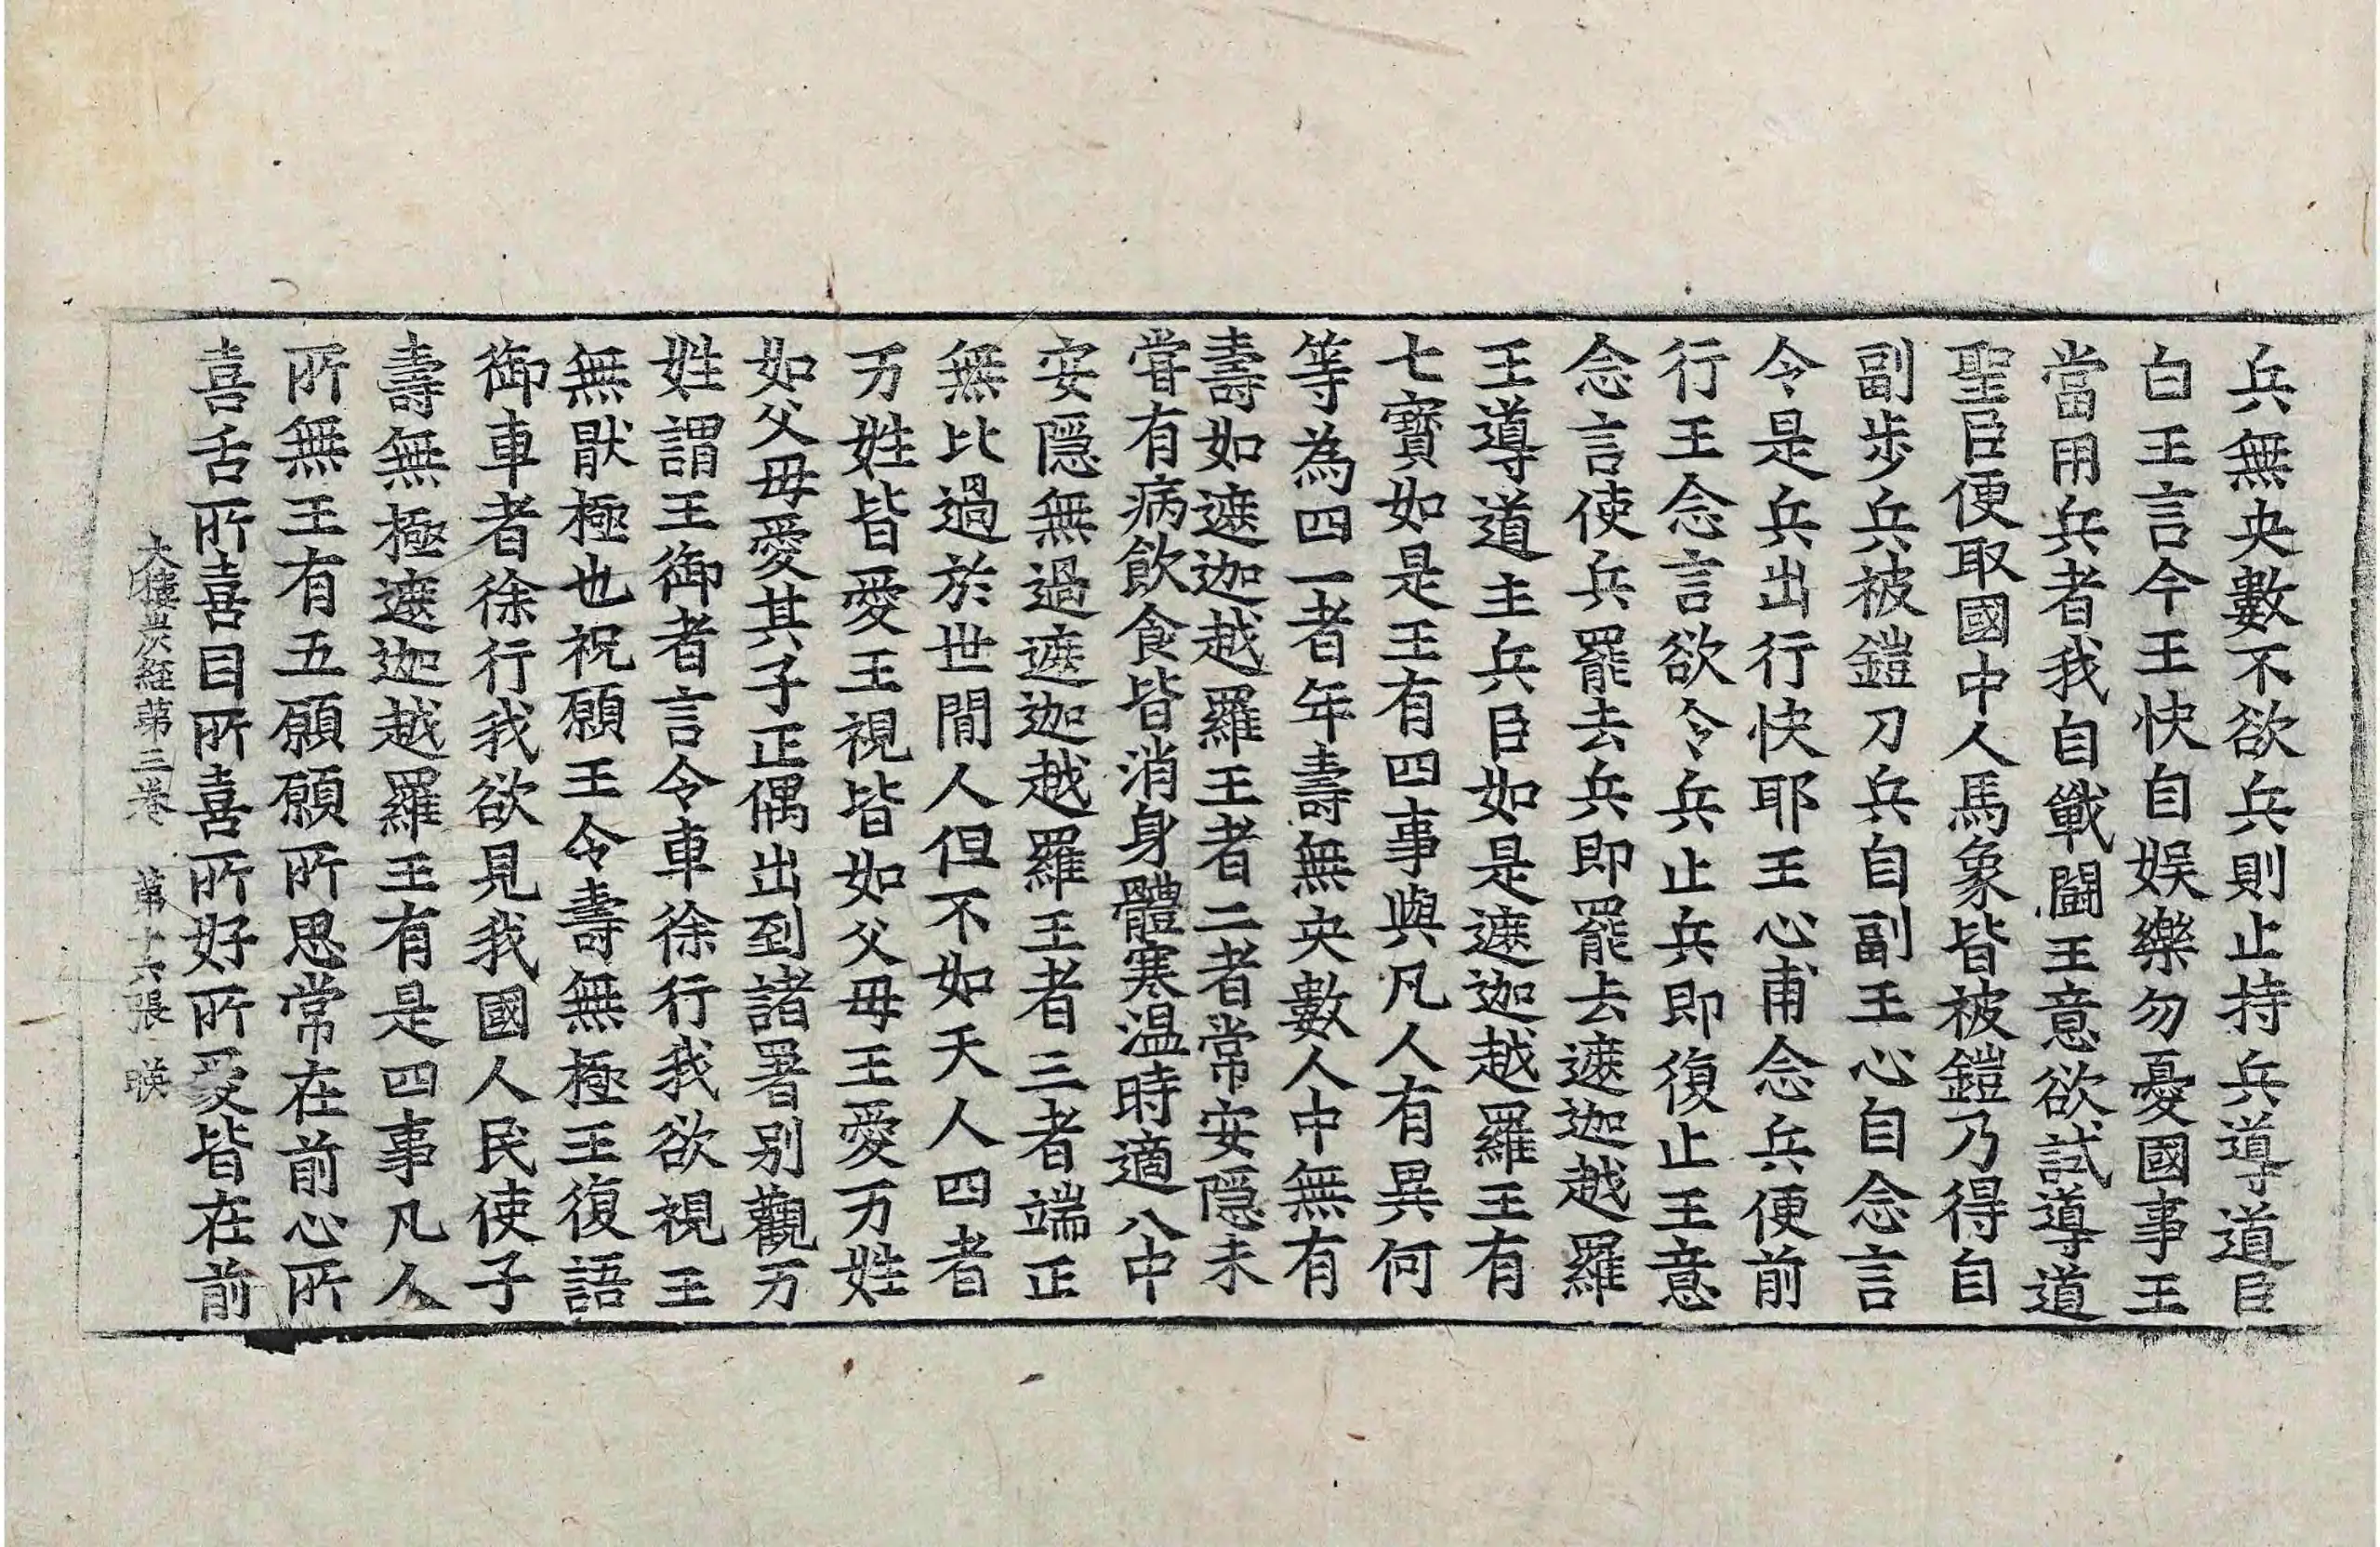 兵無央數不欲兵則止持兵導道臣
白王言今王快自娛樂勿憂國事王
當用兵者我自戰鬪王意欲試導道
聖臣便取國中人馬象皆被鎧乃得自
副步兵被鎧刀兵自副王心自念言
令是兵出行快耶王心甫念兵便前
行王念言欲令兵止兵即復止王意
念言使兵罷去兵即罷去遮迦越羅
王導道主兵臣如是遮迦越羅王有
七寶如是王有四事與凡人有異何
等為四一者年壽無央數人中無有
壽如遮迦越羅王者二者常安隱未
甞有病飲食皆消身體寒温時適人中
安隱無過遮迦越羅王者三者端正
無比過於世間人但不如天人四者
万姓皆愛王視皆如父母王愛万姓
如父母愛其子正偶出到諸署別觀万
姓謂王御者言令車徐行我欲視王
無猒極也祝願王令壽無極王復語
御車者徐行我欲見我國人民使子
壽無極遮迦越羅王有是四事凡人
所無王有五願願所思常在前心所
喜舌所喜目所喜所好所愛皆在前
大樓炭経苐三卷 苐十六張 暎